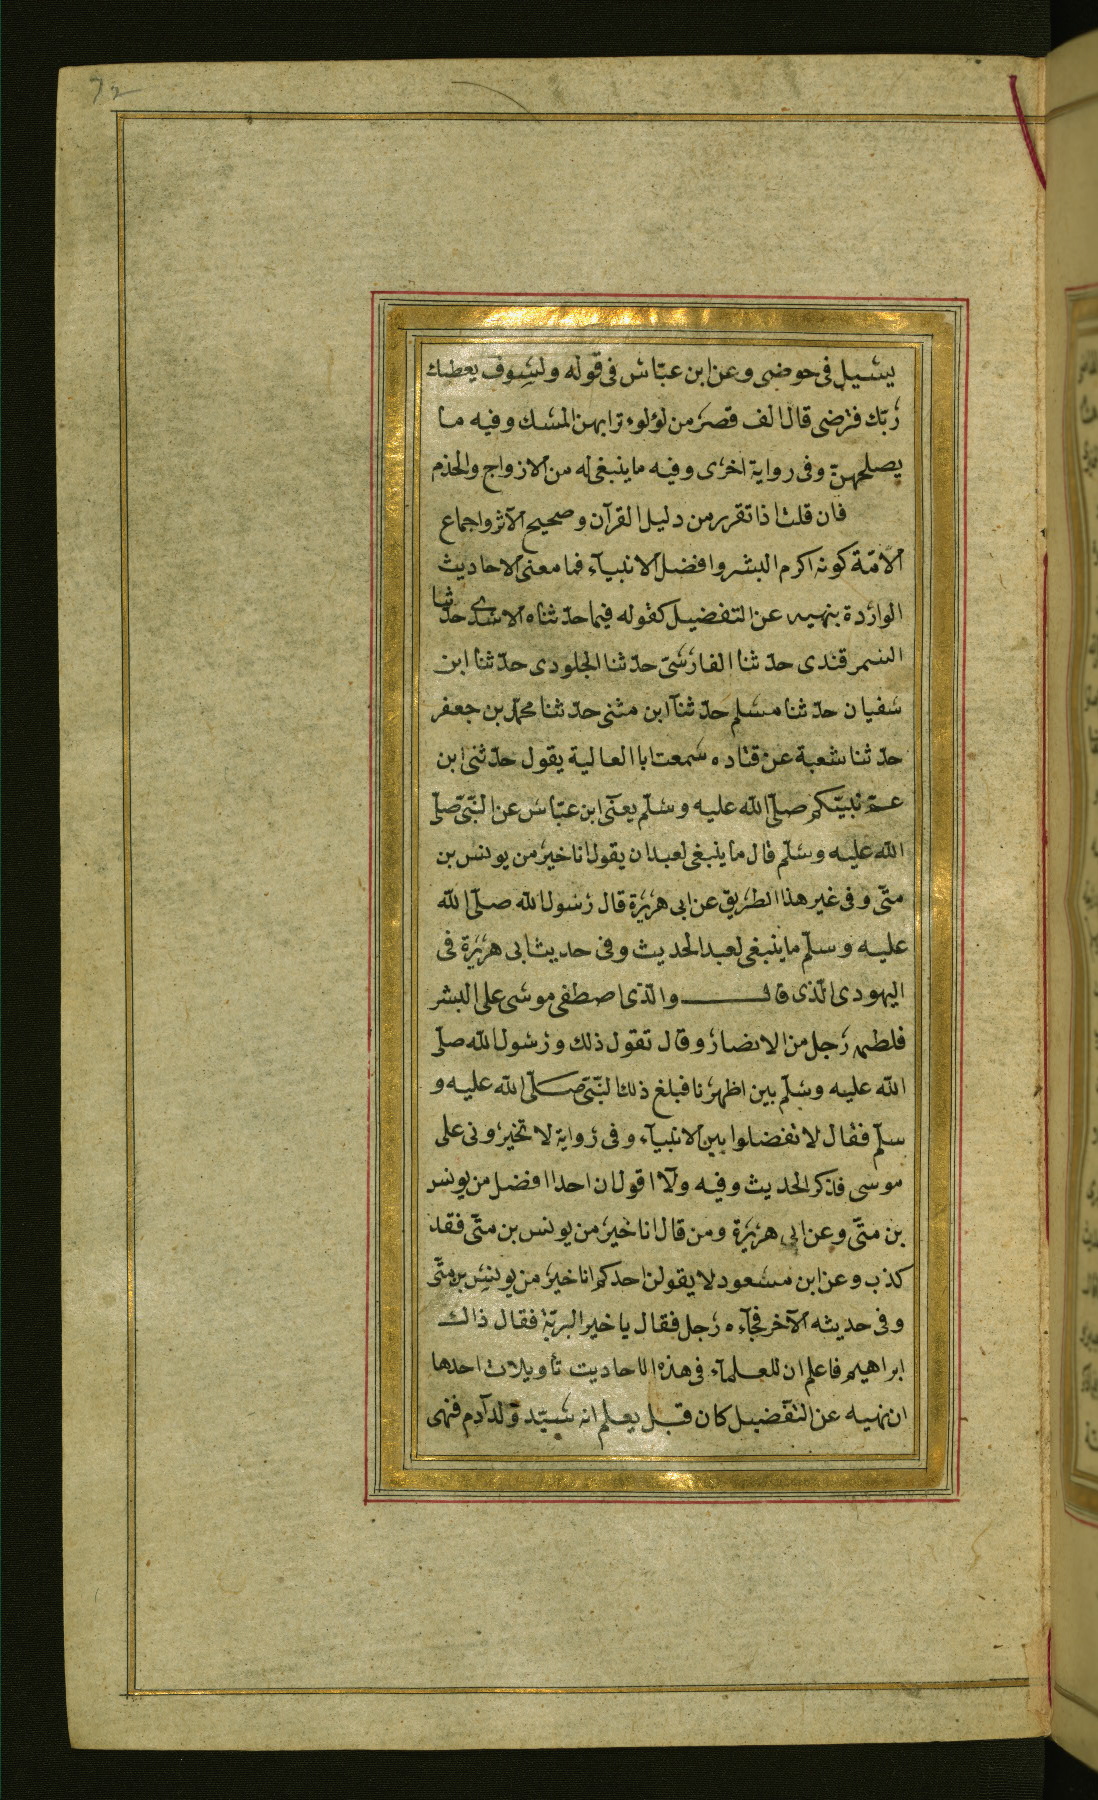 72
يسيل في حوضي وعن ابن عبّاس في قوله ولسوف يعطيك
ربّك فترضى قال الف قصر من لؤلوء ترابهن المسك وفيه ما
يصلحهنّ وفى رواية اخرى وفيه ما ينبغى له من الازواج والخدم
فان قلت اذا تقرر من دليل القرآن وصحيح الآثر واجماع
الامّة كونه اكرم البشر وافضل الانبيآء فما معنى الاحاديث
الواردة بنهيه عن التفضيل كقوله فيما حدّثناه الاسدى حدّثنا
السمرقندى حدّثنا الفارسىّ حدّثنا الجلودى حدّثنا ابن
سفيان حدّثنا مسلم حدّثنا ابن مثنى حدثنا محمّد بن جعفر
حدّثنا شعبة عن قتاده سمعت ابا العالية يقول حدّثنى ابن
عمّ نبيّكم صلّى الله عليه وسلّم يعنى ابن عبّاس عن النّبىّ صلّى
الله عليه وسلّم قال ما ينبغى لعبد ان يقول انا خير من يونس بن
متّى وفى غير هذا الطريق عن ابى هريرة قال رسول الله صلّى الله
عليه وسلّم ما ينبغى لعبد الحديث وفى حديث ابى هريرة فى
اليهودى الّذى قال والّذى اصطفى موسى على البشر
فلطمه رجل من الانصار وقال تقول ذلك ورسول الله صلّى
الله عليه وسلّم بين اظهرنا فبلغ ذلك النّبىّ صلّى الله عليه و
سلّم فقال لا تفضلوا بين الانبيآء وفى رواية لا تخيرونى على
موسى فذكر الحديث وفيه ولا اقول ان احدا افضل من يونس
بن متّى وعن ابى هريرة ومن قال انا خير من يونس بن متّى فقد
كذب وعن ابن مسعود لا يقولن احدكم انا خير من يونس بن متّى
وفى حديثه الآخر فجآءه رجل فقال يا خير البريّة فقال ذالك
ابراهيم فاعلم ان للعلمآء فى هذه الاحاديث تأويلات احدها
ان نهيه عن التفضيل كان قبل يعلم انه سيّد ولد آدم فنهى